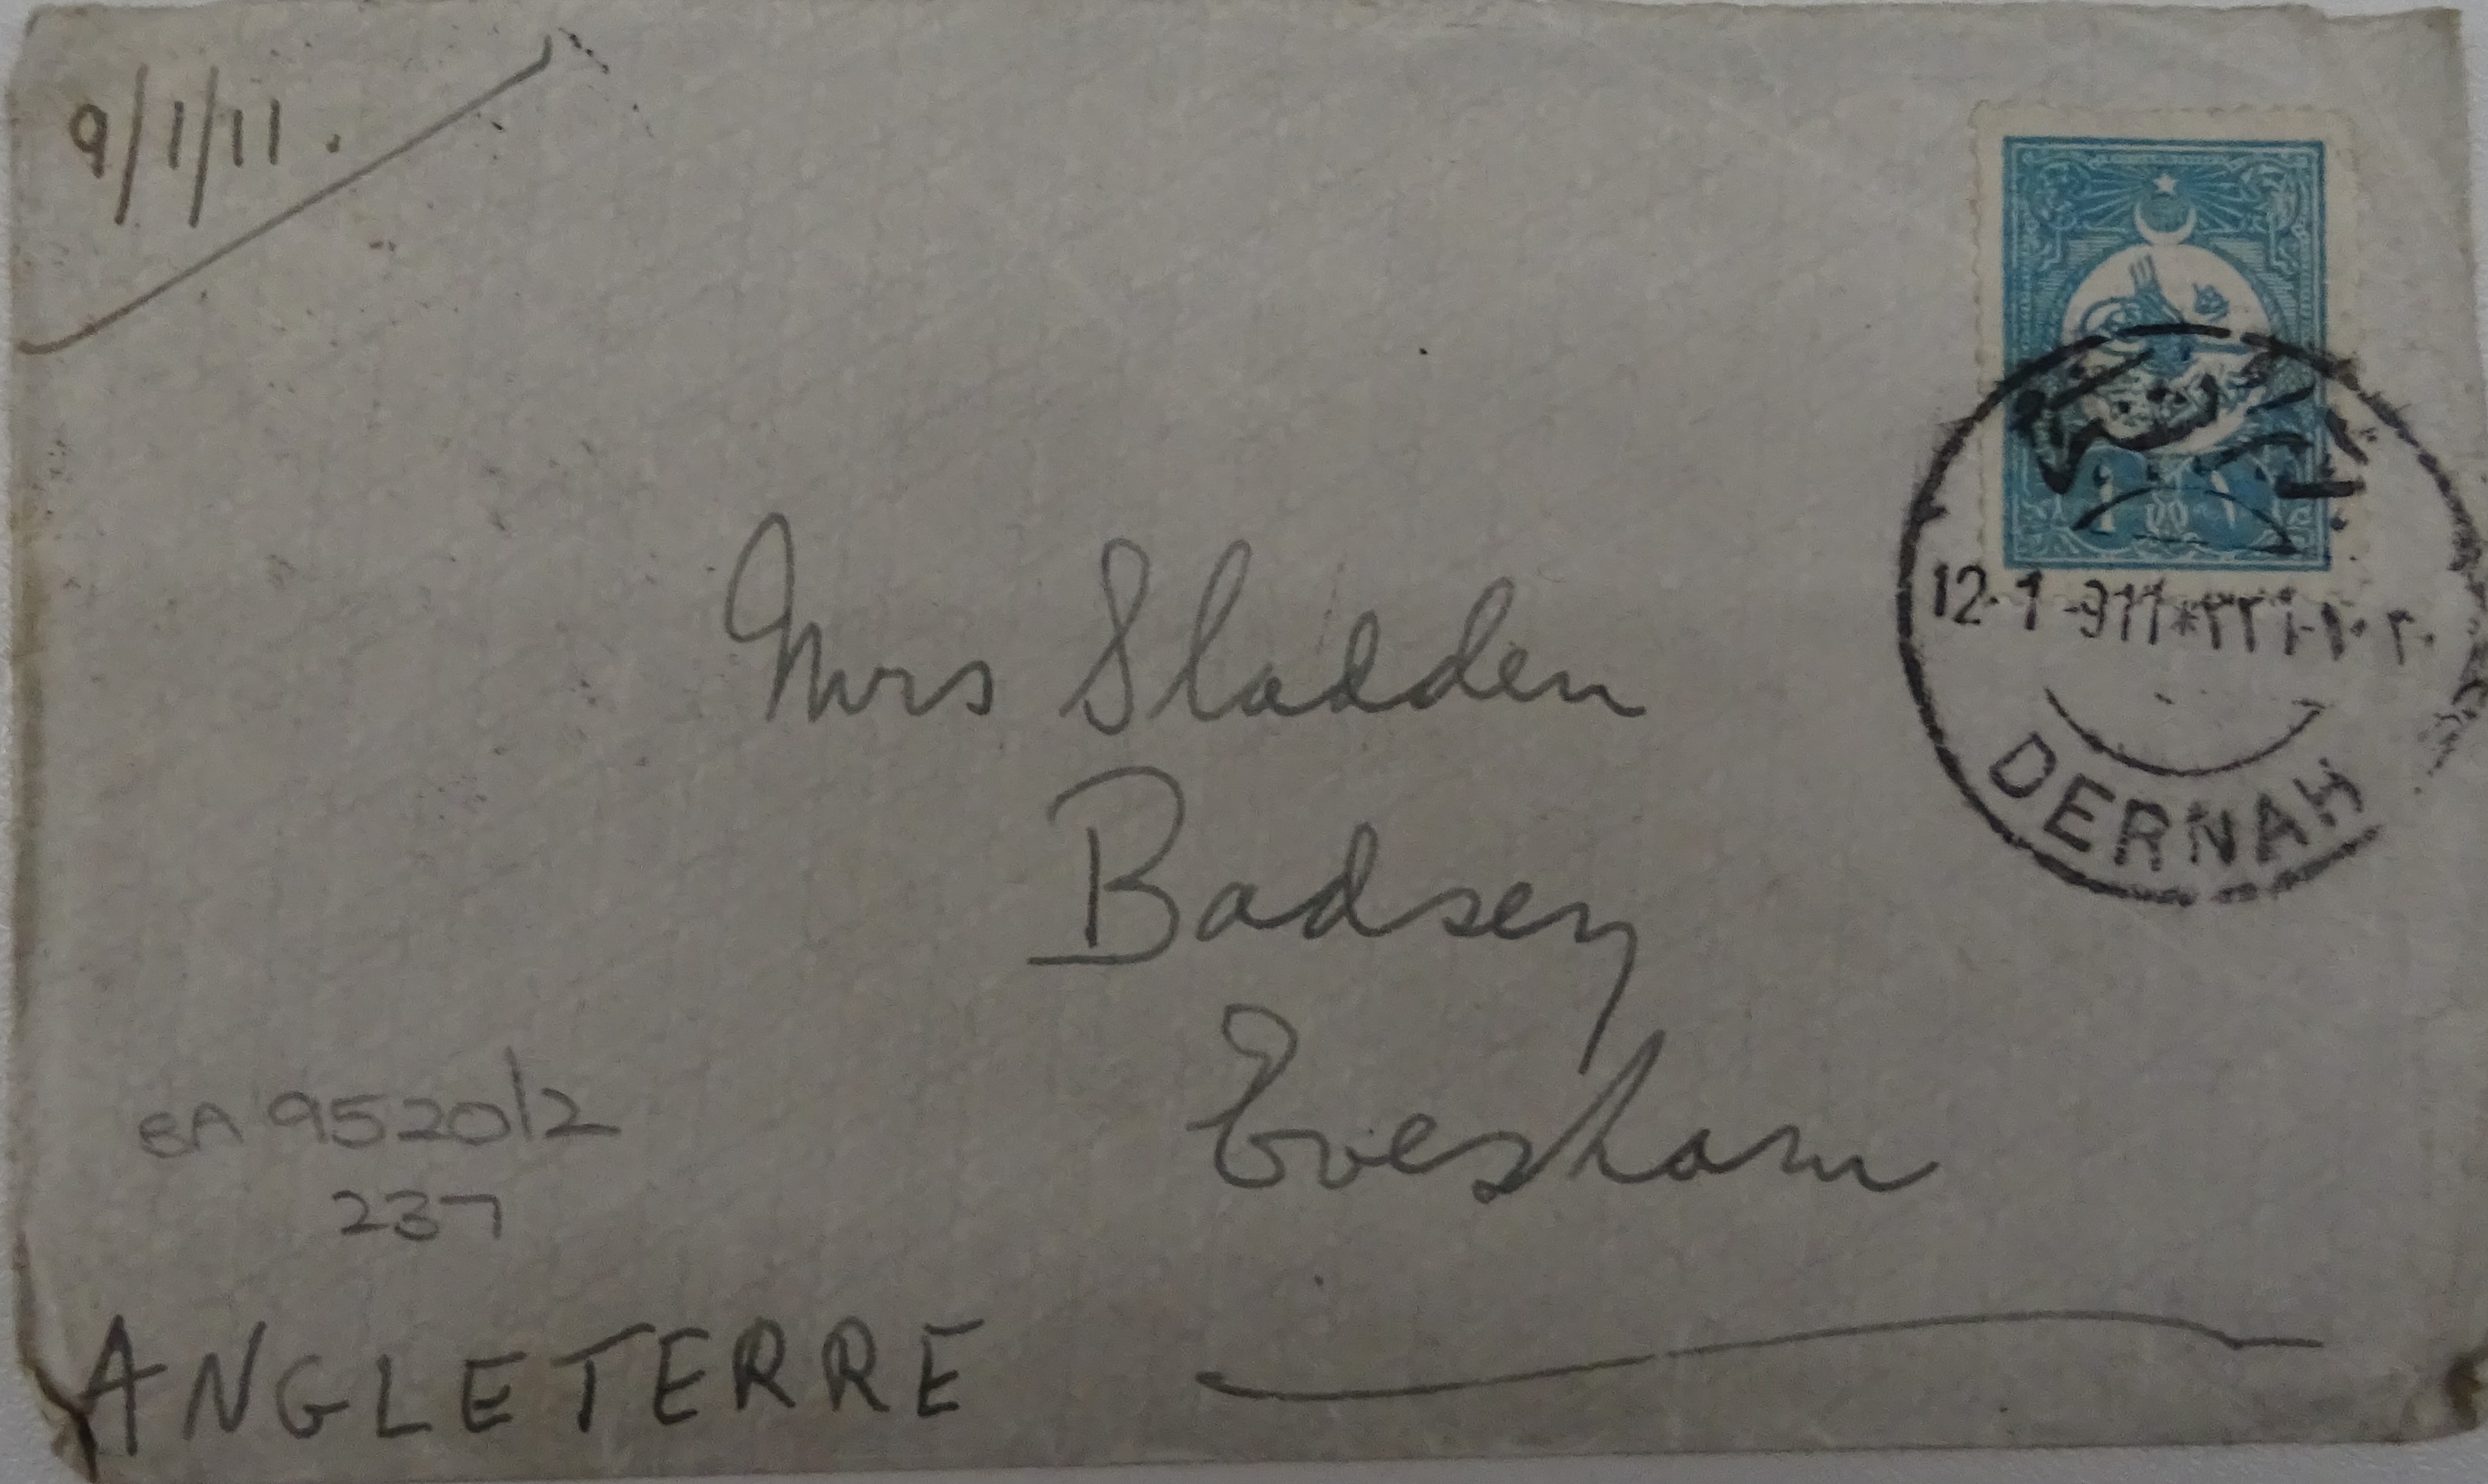 9/1/11.
Mrs Sladden
Badsey
Evesham
BA 9520/2
237
ANGLETERRE
12-1-911*
DERNAH